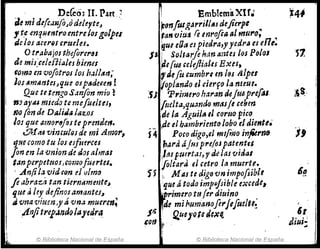 Defeos: II. Part.
de mi descanso, ò deleyte,
y te enquentro entre los golpes
de los aceros crueles.
O trabajos thesoreros
de mis celestiales bienes
como en vosotros los hallan,
los amantes, que os padecen?
Que te tengo Sansón mio?
no ayas miedo te me sueltes,
no son de Dalida lazos
los que amorosos te prenden.
Mas vinculos de mi Amor,
que como tu los esfuerces
son en la vnion de dos almas
tan perpetuos, como fuertes.
Ansi la vid con el olmo
se abraza tan tiernamente,
que à ley de finos amantes,
à vna viuen, y à vna mueren:
Ansi trepando la yedra
con
Emblema XII.
144
50
51
52
53
54
55
56
con sus garrillas de fierpe
tan viua se enrosca al muro,
que ella es piedra, y yedra es este.
Soltarse han antes los Polos
de sus celestiales Exes,
y de su cumbre en los Alpes
soplando el cierço la nieue.
Primero haran de sus presas
suelta, quando mas se ceben
de la Aguila el corvo pico
de el hambriento lobo el diente.
Poco digo, el mismo infierno
hará à sus presos patentes
las puertas, y de las vidas
soltarà el cetro la muerte.
Mas te digo vn imposible
que à todo imposible excede,
primero tu ser diuino
de mi humano ser se suelte:
Que yo te dexe,
diui-
57
58
59
60
61
© Biblioteca Nacional de España
© Biblioteca Nacional de España